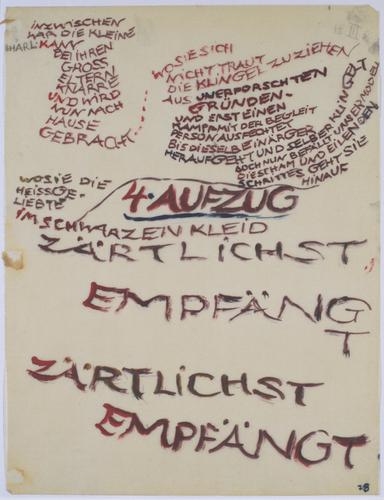 INZWISCHEN
WAR DIE KLEINE
CHARL. KANN
BEI IHREN
GROSS
ELTERN
KNARRE
UND WIRD
NUN NACH
HAUSE
GEBRACHT
WO SIE SICH
NICHT TRAUT
DIE KLINGEL ZU ZIEHEN
AUS UNERFORSCHTEN
GRÜNDEN-
UND ERST EINEN
KAMPF MIT DER BEGLEIT
PERSON AUSFECHTET
BIS DIESELBE IN ÄRGER
HERAUFGEHT UND SELBER KLINGELT
DOCH NUN BEFÄLLT UNSER MODELL
DIE SCHAM UND EILENDEN
SCHRITTES GEHT SIE
HINAUF
4. AUFZUG
WO SIE DIE
HEISSGE-
LIEBTE
IM SCHWARZEN KLEID
ZÄRTLICHST
EMPFÄNG
T
ZÄRTLICHST
EMPFÄNGT